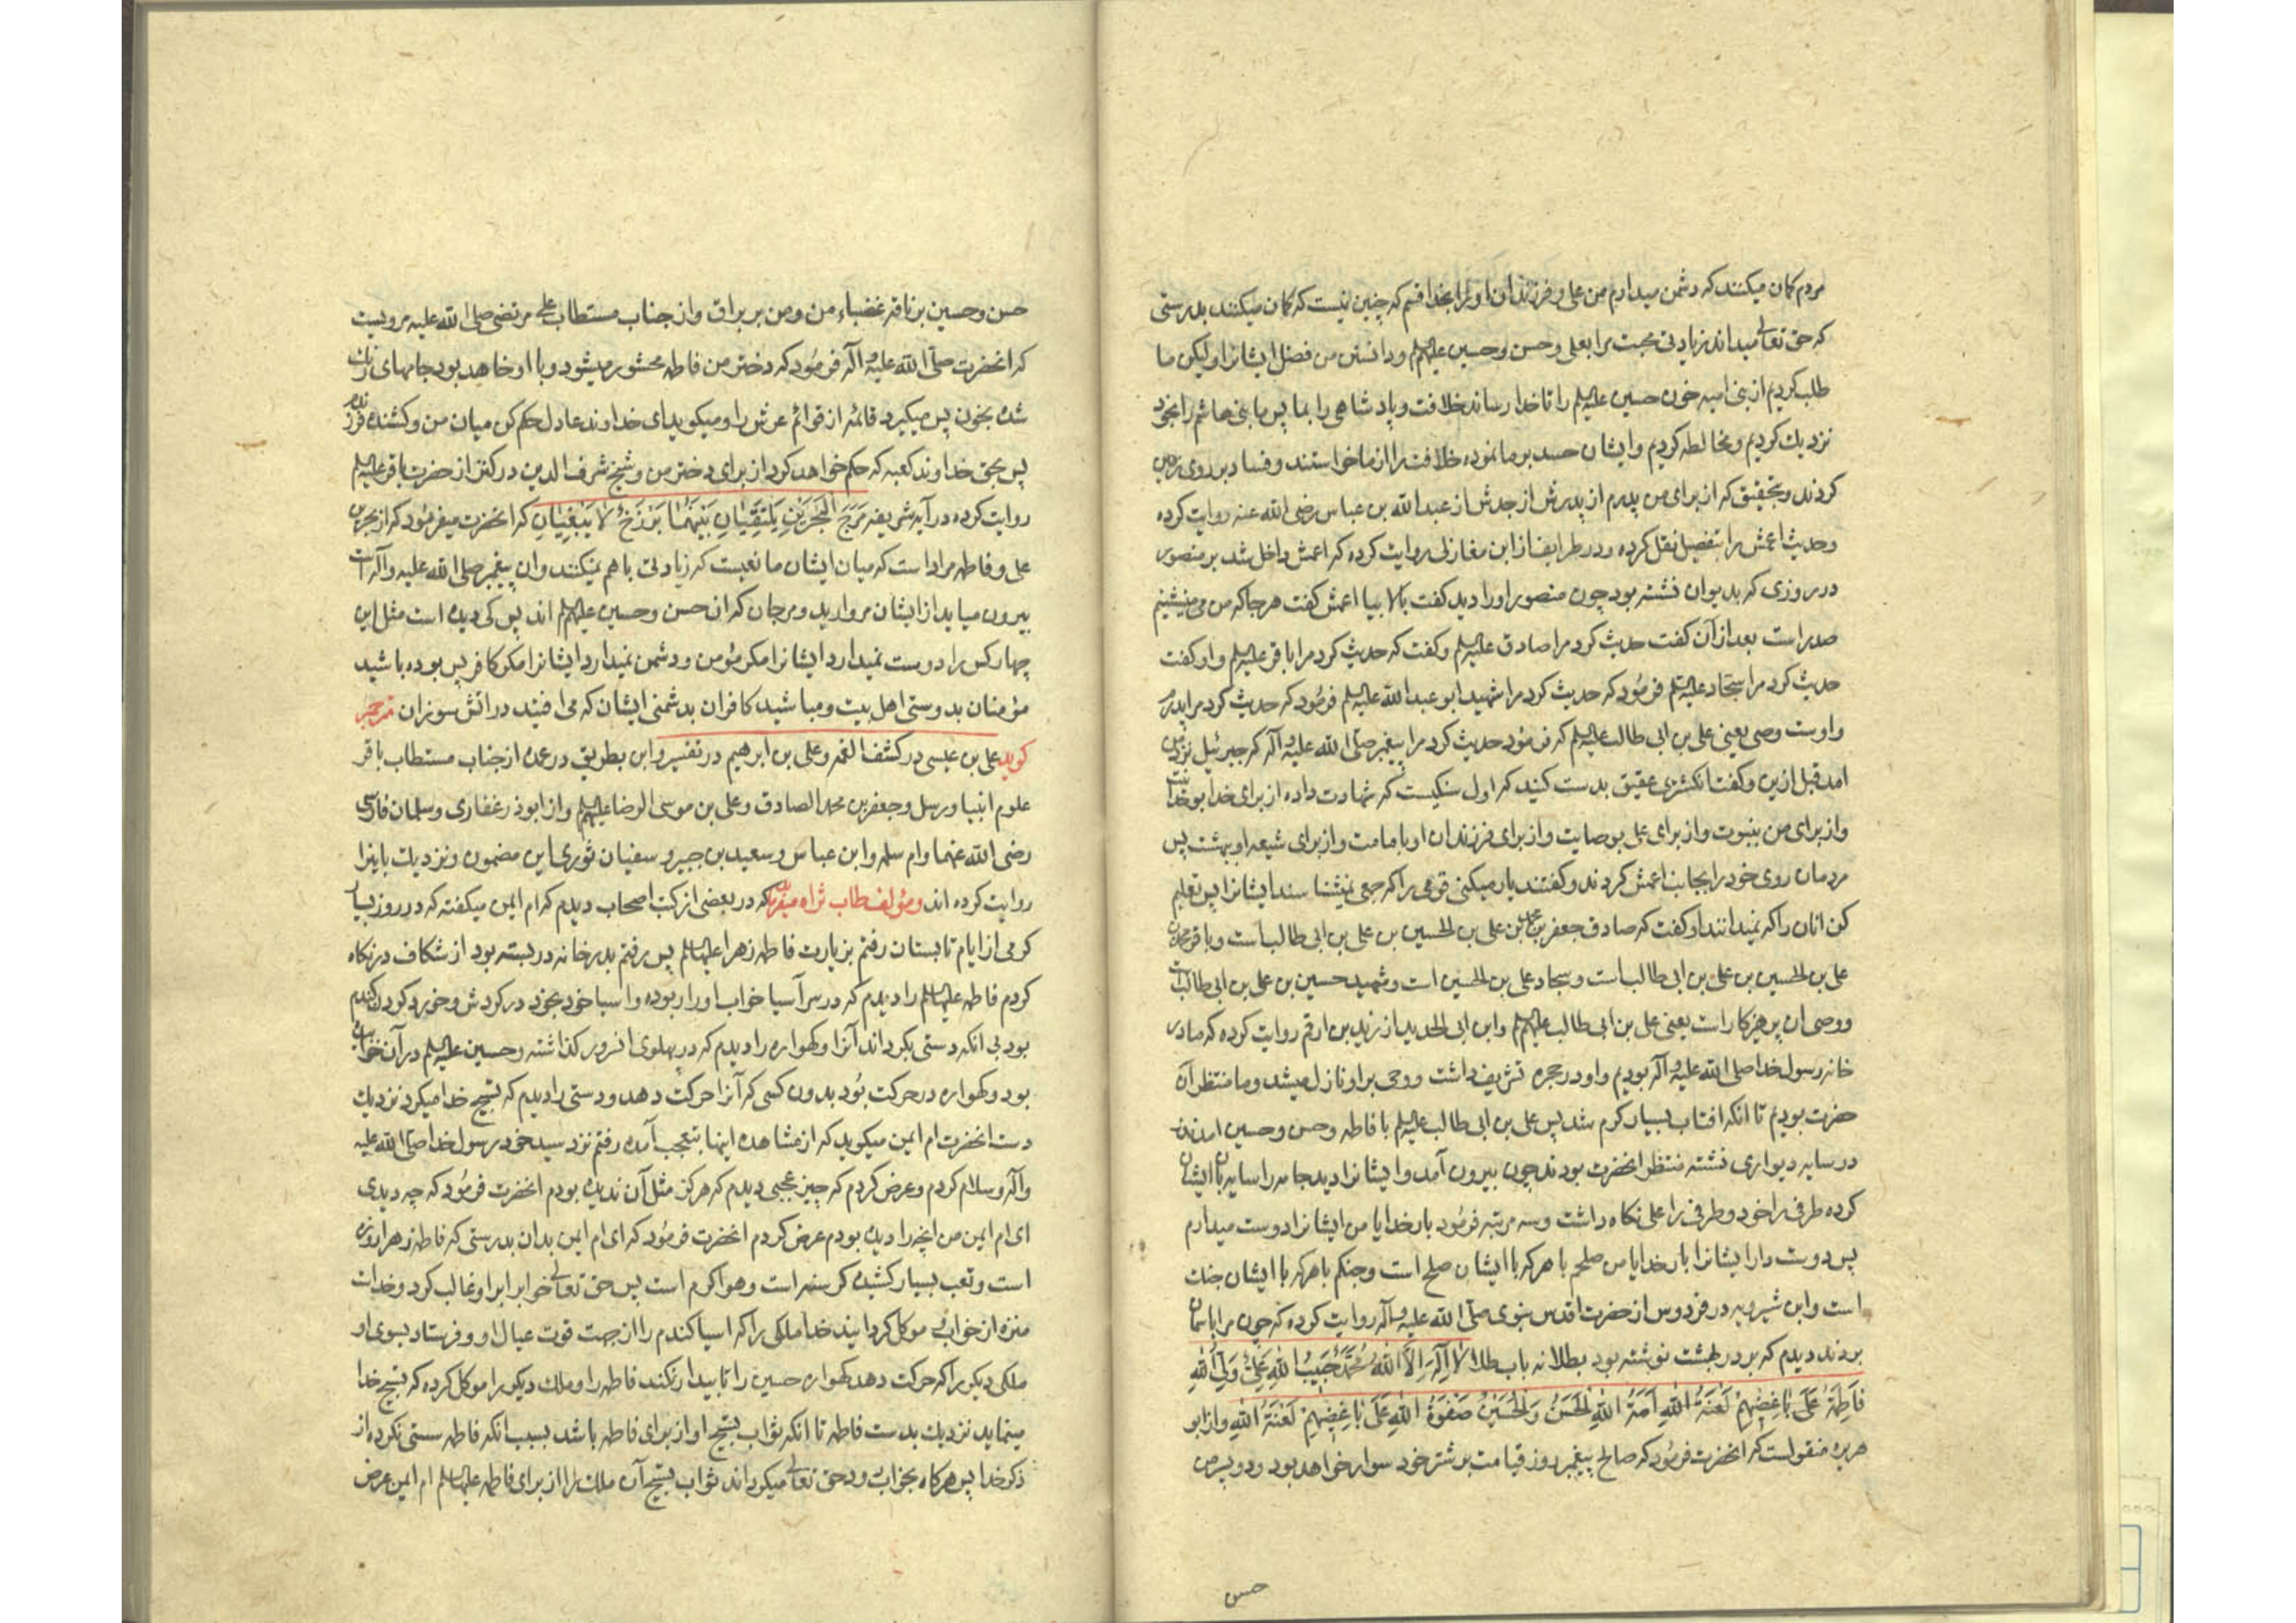 مردم کمان میکنند که دشمن میدارم من علی و فرزندان او را بخدا قسم که چنین نیست که کمان میکنند بدرستی
که حق تعالی میداند زیادتی محبت مرا بعلی و حسن و حسین علیهم السلم و دانستن من فضل ایشانرا و لیکن ما
طلب کردیم از بنی امیه خون حسین علیه السلم را تا خدا رساند خلافت و پادشاهی را بما پس ما بنی هاشم را بخود
نزدیك کردیم و مخالطه کردیم و ایشان حسد بر ما نموده خلافت را از ما خواستند و فساد بر روی زمین
کردند و بتحقیق که از برای من پدرم از پدرش از جدش از عبد الله بن عباس رضی الله عنه روایت کرده
و حدیث اعمش را بتفصیل نقل کرده و در طرایف از ابن مغازلی روایت کرده که اعمش داخل شد بر منصور
در روزی که بدیوان نشسته بود چون منصور او را دید کفت بالا بیا اعمش کفت هر جا که من می نشینم
صدر است بعد از آن کفت حدیث کرد مرا صادق علیه السلم و کفت که حدیث کرد مرا باقر علیه السلم و او کفت
حدیث کرد مرا سجاد علیه السلم فرمود که حدیث کرد مرا شهید ابو عبد الله علیه السلم فرمود که حدیث کرد مرا پدرم
و اوست وصی یعنی علی بن ابی طالب علیه السلم که فرمود حدیث کرد مرا پیغمبر صلی الله علیه و آله که جبرئیل نزد من
امد قبل ازین و کفت انکشتری عقیق بدست کنید که اول سنکیست که شهادت داده از برای خدا بوحدانیت
و از برای من بنبوت و از برای علی بوصایت و از برای فرزندان او بامامت و از برای شیعه او ببهشت پس
مردمان روی خود را بجانب اعمش کردند و کفتند یاد میکنی قومی را که جمعی نمیشناسند ایشانرا پس تعلیم
کن انان را که نمیدانند او کفت که صادق جعفر بن محمد بن علی بن الحسین بن علی بن ابی طالب است و باقر محمد بن
علی بن الحسین بن علی بن ابی طالب است و سجاد علی بن الحسین است و شهید حسین بن علی بن ابی طالب است
و وصی ان پرهیزکار است یعنی علی بن ابی طالب علیهم السلم و ابن ابی الحدید از زید بن ارقم روایت کرده که ما در
خانه رسول خدا صلی الله علیه و آله بودیم و او در حجره تشریف داشت و وحی بر او نازل میشد و ما منتظر آن
حضرت بودیم تا انکه افتاب بسیار کرم شد پس علی بن ابی طالب علیه السلم با فاطمه و حسن و حسین امدند
در سایه دیواری نشسته منتظر انحضرت بودند چون بیرون آمد و ایشانرا دید جامه را سایه بان ایشان
کرده طرفی را خود و طرفی را علی نکاه داشت و سه مرتبه فرمود بار خدایا من ایشانرا دوست میدارم
پس دوست دار ایشانرا بار خدایا من صلحم با هر که با ایشان صلح است و جنکم با هر که با ایشان جنك
است و ابن شیرویه در فردوس از حضرت اقدس نبوی صلی الله علیه و آله روایت کرده که چون مرا باسمان
بردند دیدم که بر در بهشت نوشته بود بطلا نه باب طلا لَا اِلٰهَ اِلَّا اللهُ مُحَمَّدٌ حَبِیبُ اللهِ عَلِیٌّ وَلِیُّ اللهِ
فَاطِمَةُ عَلَی بَاغِضِهِمْ لَعْنَةُ اللهِ اَمَةُ اللهِ الْحَسَنُ وَ الْحُسَیْنُ صَفْوَةُ اللهِ عَلَی بَاغِضِهِمْ لَعْنَةُ اللهِ و از ابو
هریره منقولست که انحضرت فرمود که صالح پیغمبر روز قیامت بر شتر خود سوار خواهد بود و دو پسر من
حسن
حسن و حسین بر ناقه غضباء من و من بر براق و از جناب مستطاب علی مرتضی صلی الله علیه مرویست
که انحضرت صلی الله علیه و آله فرمود که دختر من فاطمه محشور میشود و با او خاهد بود جامهای رنك
شده بخون پس میکیرد قائمه از قوائم عرش را و میکوید ای خداوند عادل حکم کن میان من و کشنده فرزندم
پس بحق خداوند کعبه که حکم خواهد کرد از برای دختر من و شیخ شرف الدین در کنز از حضرت باقر علیه السلم
روایت کرده در آیه شریفه مَرَجَ الْبَحْرَیْنِ یَلْتَقِیَانِ بَیْنَهُمَا بَرْزَخٌ لَا یَبْغِیَانِ که انحضرت میفرمود که از بحرین
علی و فاطمه مراد است که میان ایشان مانعیست که زیادتی با هم نمیکنند و ان پیغمبر صلی الله علیه و آله است
بیرون میاید از ایشان مروارید و مرجان که ان حسن و حسین علیهم السلم اند پس کی دیده است مثل این
چهار کس را دوست نمیدارد ایشانرا مکر مؤمن و دشمن نمیدارد ایشانرا مکر کافر پس بوده باشید
مؤمنان بدوستی اهل بیت و مباشید کافران بدشمنی ایشان که می افتید در اتش سوزان مترجم
کوید علی بن عیسی در کشف الغمه و علی بن ابرهیم در تفسیر و ابن بطریق در عمده از جناب مستطاب باقر
علوم انبیا و رسل و جعفر بن محمد الصادق و علی بن موسی الرضا علیهم السلم و از ابوذر غفاری و سلمان فارسی
رضی الله عنهما و ام سلمه و ابن عباس و سعید بن جبیر و سفیان ثوری این مضمون و نزدیك باینرا
روایت کرده اند و مؤلف طاب ثراه میفرماید که در بعضی از کتب اصحاب دیدم که ام ایمن میکفته که در روز بسیار
کرمی از ایام تابستان رفتم بزیارت فاطمه زهرا علیها السلم پس رفتم بدر خانه در بسته بود از شکاف در نکاه
کردم فاطمه علیها السلم را دیدم که در سر آسیا خواب او را ربوده و اسیا خود بخود در کردش و خورد کردن کندم
بود بی انکه دستی بکرداند آنرا و کهواره را دیدم که در پهلوی انسرور کذاشته و حسین علیه السلم در آن خواب
بود و کهواره در حرکت بود بدون کسی که آنرا حرکت دهد و دستی را دیدم که تسبیح خدا میکرد نزدیك
دست انحضرت ام ایمن میکوید که از مشاهده اینها بتعجب آمده رفتم نزد سید خود رسول خدا صلی الله علیه
و آله و سلام کردم و عرض کردم که چیز عجبی دیدم که هرکز مثل آن ندیده بودم انحضرت فرمود که چه دیدی
ای ام ایمن من انچه را دیده بودم عرض کردم انحضرت فرمود که ای ام ایمن بدان بدرستی که فاطمه زهرا روزه
است و تعب بسیار کشیده کرسنه است و هوا کرم است پس حق تعالی خوابرا بر او غالب کرد و خداست
منزه از خواب موکل کردانید خدا ملکی را که اسیا کندم را از جهت قوت عیال او و فرستاد بسوی او
ملکی دیکر را که حرکت دهد کهواره حسین را تا بیدار نکند فاطمه را و ملك دیکر را موکل کرده که تسبیح خدا
مینماید نزدیك بدست فاطمه تا انکه ثواب تسبیح او از برای فاطمه باشد بسبب انکه فاطمه سستی نکرده از
ذکر خدا پس هرکاه بخواب رود حق تعالی میکرداند ثواب تسبیح آن ملك را از برای فاطمه علیها السلم ام ایمن عرض